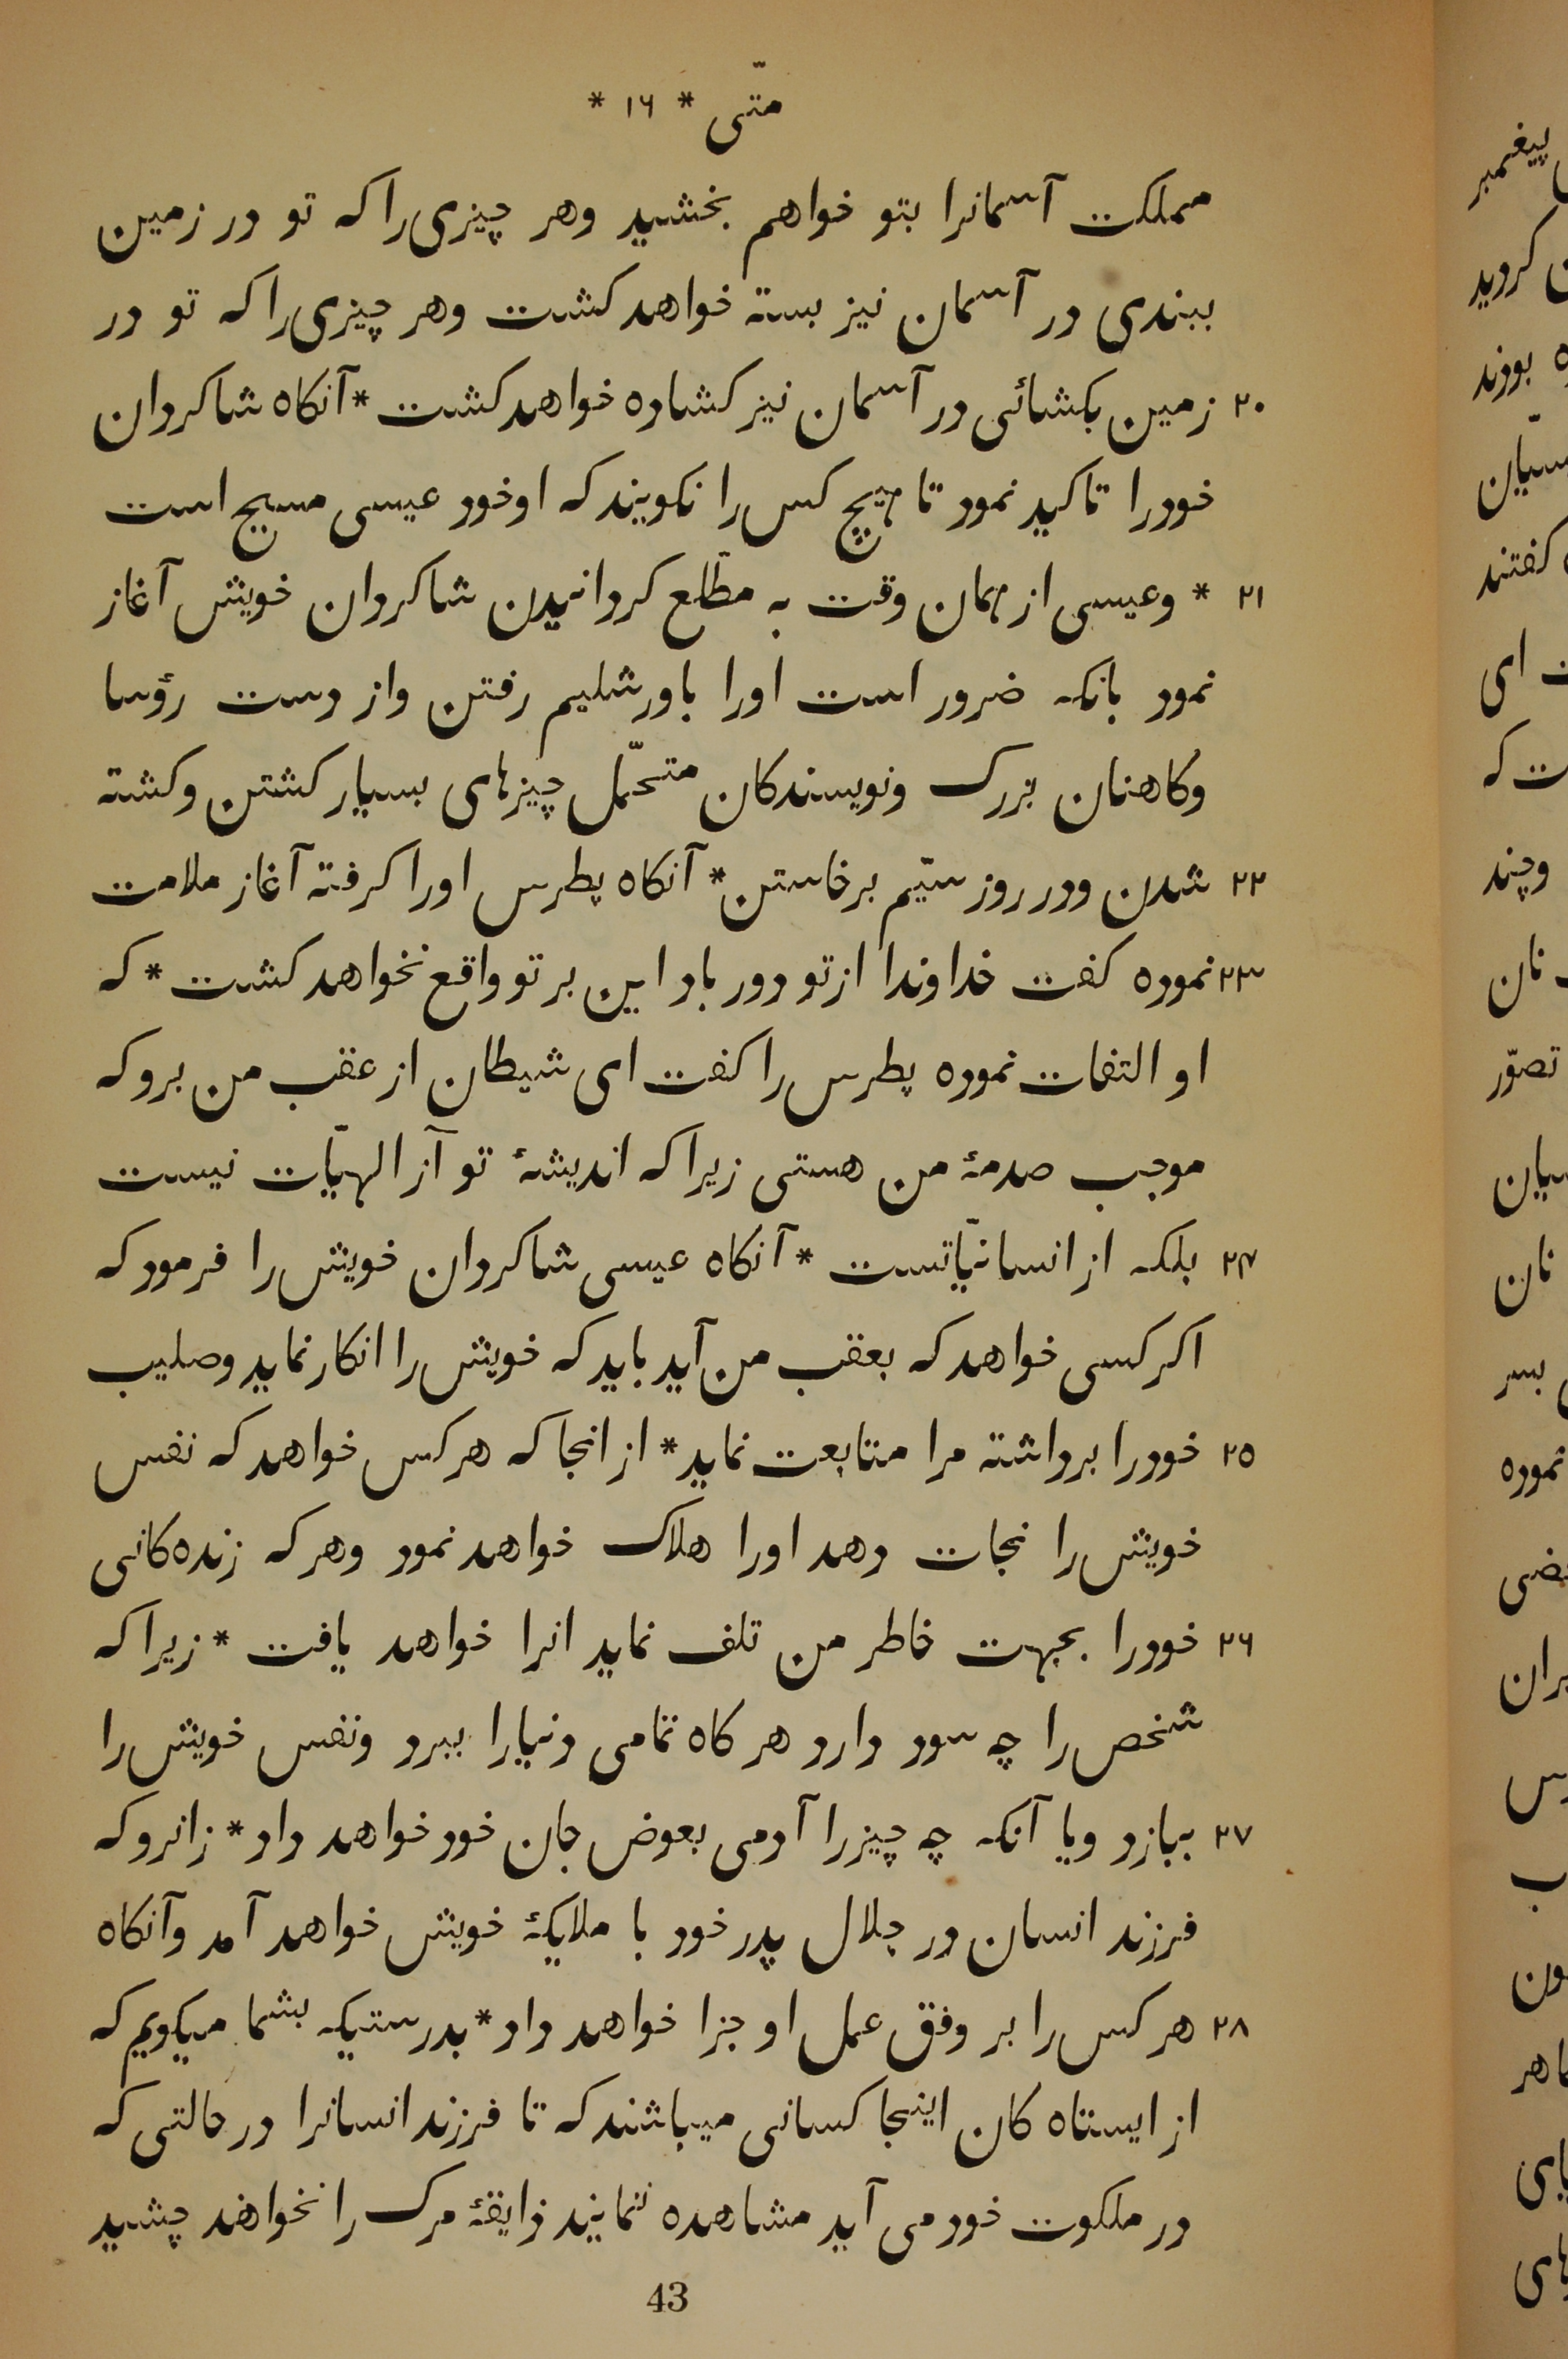 متّی * ١٦ *
مملکت آسمانرا بتو خواهم بخشید وهر چیزی را که تو در زمین
ببندی در آسمان نیز بسته خواهد کشت وهر چیزی را که تو در
٢٠ زمین بکشائی در آسمان نیز کشاده خواهد کشت * آنکاه شاکردان
خود را تاکید نمود تا هیچ کس را نکویند که او خود عیسی مسیح است
٢١ * وعیسی از همان وقت به مطّلع کردانیدن شاکردان خویش آغاز
نمود بانکه ضرور است اورا باورشلیم رفتن واز دست رؤسا
وکاهنان بزرک ونویسندکان متحمّل چیزهای بسیار کشتن وکشته
٢٢ شدن ودر روز سیّم برخاستن * آنکاه پطرس اورا کرفته آغاز ملامت
٢٣ نموده کفت خداوندا از تو دور باد این بر تو واقع نخواهد کشت * که
او التفات نموده پطرس را کفت ای شیطان از عقب من برو که
موجب صدمهٔ من هستی زیرا که اندیشهٔ تو آز الهیّات نیست
٢٤ بلکه از انسانیّاتست * آنکاه عیسی شاکردان خویش را فرمود که
اکر کسی خواهد که بعقب من آید باید که خویش را انکار نماید وصلیب
٢٥ خود را برداشته مرا متابعت نماید * از انجا که هر کس خواهد که نفس
خویش را نجات دهد اورا هلاک خواهد نمود وهر که زنده کانی
٢٦ خود را بجهت خاطر من تلف نماید انرا خواهد یافت * زیرا که
شخص را چه سود دارد هر کاه تمامی دنیا را ببرد ونفس خویش را
٢٧ ببازد ویا آنکه چه چیز را آدمی بعوض جان خود خواهد داد * زانرو که
فرزند انسان در جلال پدر خود با ملایکهٔ خویش خواهد آمد وآنکاه
٢٨ هر کس را بر وفق عمل او جزا خواهد داد * بدرستیکه بشما میکویم که
از ایستاه کان اینجا کسانی میباشند که تا فرزند انسانرا در حالتی که
در ملکوت خود می آید مشاهده ننمایند ذایقهٔ مرک را نخواهند چشید
43
پیغمبر
کردید
بودند
کفتند
ای
که
وچند
نان
تصوّر
نان
نموده